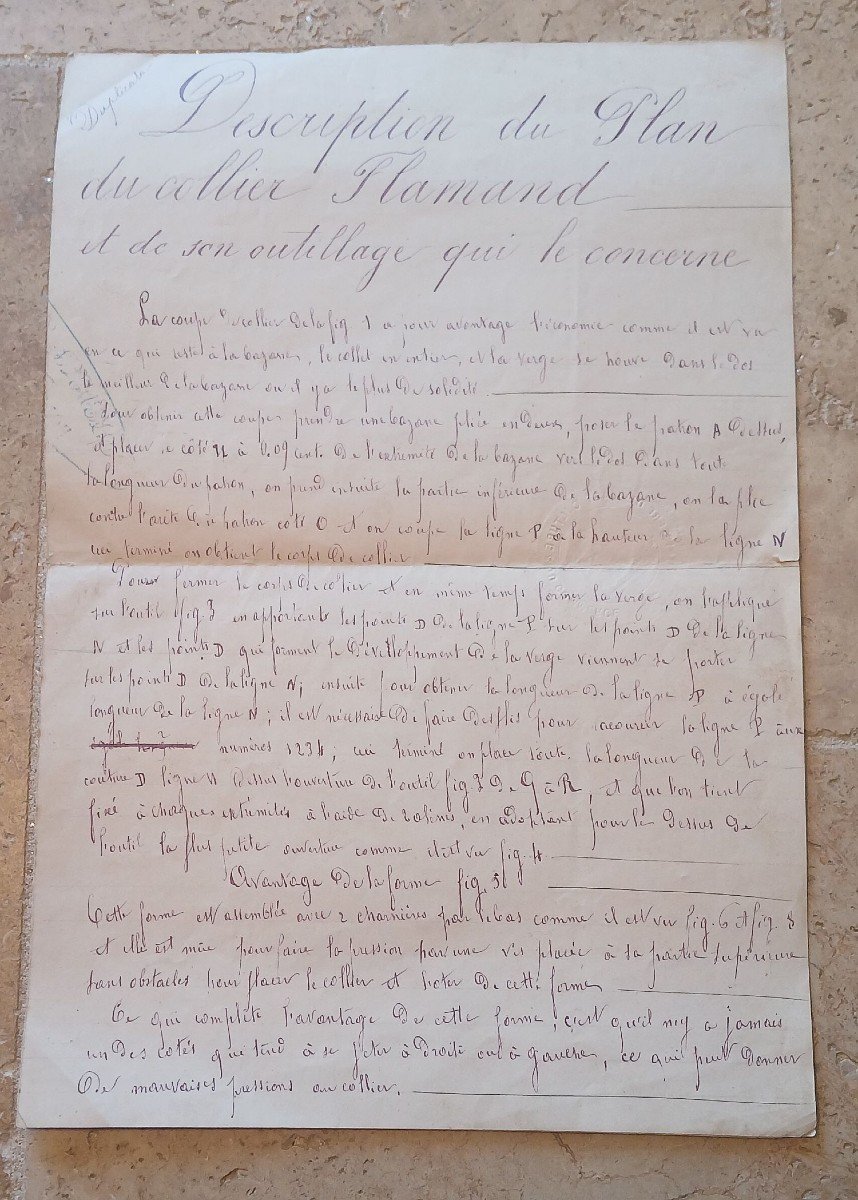 Duplicata
Description du Plan
du collier Flamand
et de son outillage qui le concerne
La coupe de collier de la fig 1 a pour avantage l'économie comme il est vu
en ce qui reste à la bazane, le collet en entier, et la verge se trouve dans le dos
le meilleur de la bazane ou il y a le plus de solidité.
Pour obtenir cette coupe prendre une bazane pliée en deux, poser le patron A dessus,
et placer le côté à 0.09 cent. de l'extremité de la bazane vers le dos dans tout
la longueur du patron, on prend ensuite la partie inférieure de la bazane, on la plie
contre l'arête du patron côté O et on coupe la ligne P à la hauteur de la ligne N
ceci terminé on obtient le corps de collier
Pour fermer le corps de collier et en même temps former la verge, on l'applique
sur l'outil fig 3 en apportant les points D de la ligne P sur les points D de la ligne
N et les points D qui forment le développement de la verge viennent se porter
sur les points D de la ligne N; ensuite pour obtenir la longueur de la ligne P à égale
longueur de la ligne N; il est nécessaire de faire des plis pour racourcir la ligne P aux
numéros 1234; ceci terminé on place toute la longueur de la
couture D ligne N dessus l'ouverture de l'outil fig 3 de Q à R, et que l'on tient
fixé à chaques extrémités à l'aide de, en adoptant pour le dessus de
l'outil la plus petite ouverture comme il est vu fig. 4.
Avantage de la forme fig. 5
Cette forme est assemblée avec 2 charnières par le bas comme il est vu fig. 6 et fig. 8
et elle est mûe pour faire la pression par une vis placée à la partie supérieure
sans obstacles pour placer le collier et l'oter de cette forme
Ce qui complète l'avantage de cette forme; c'est qu'il n'y a jamais
un des cotés qui tend à se jeter à droite ou à gauche, ce qui peut donner
de mauvaises pressions au collier.